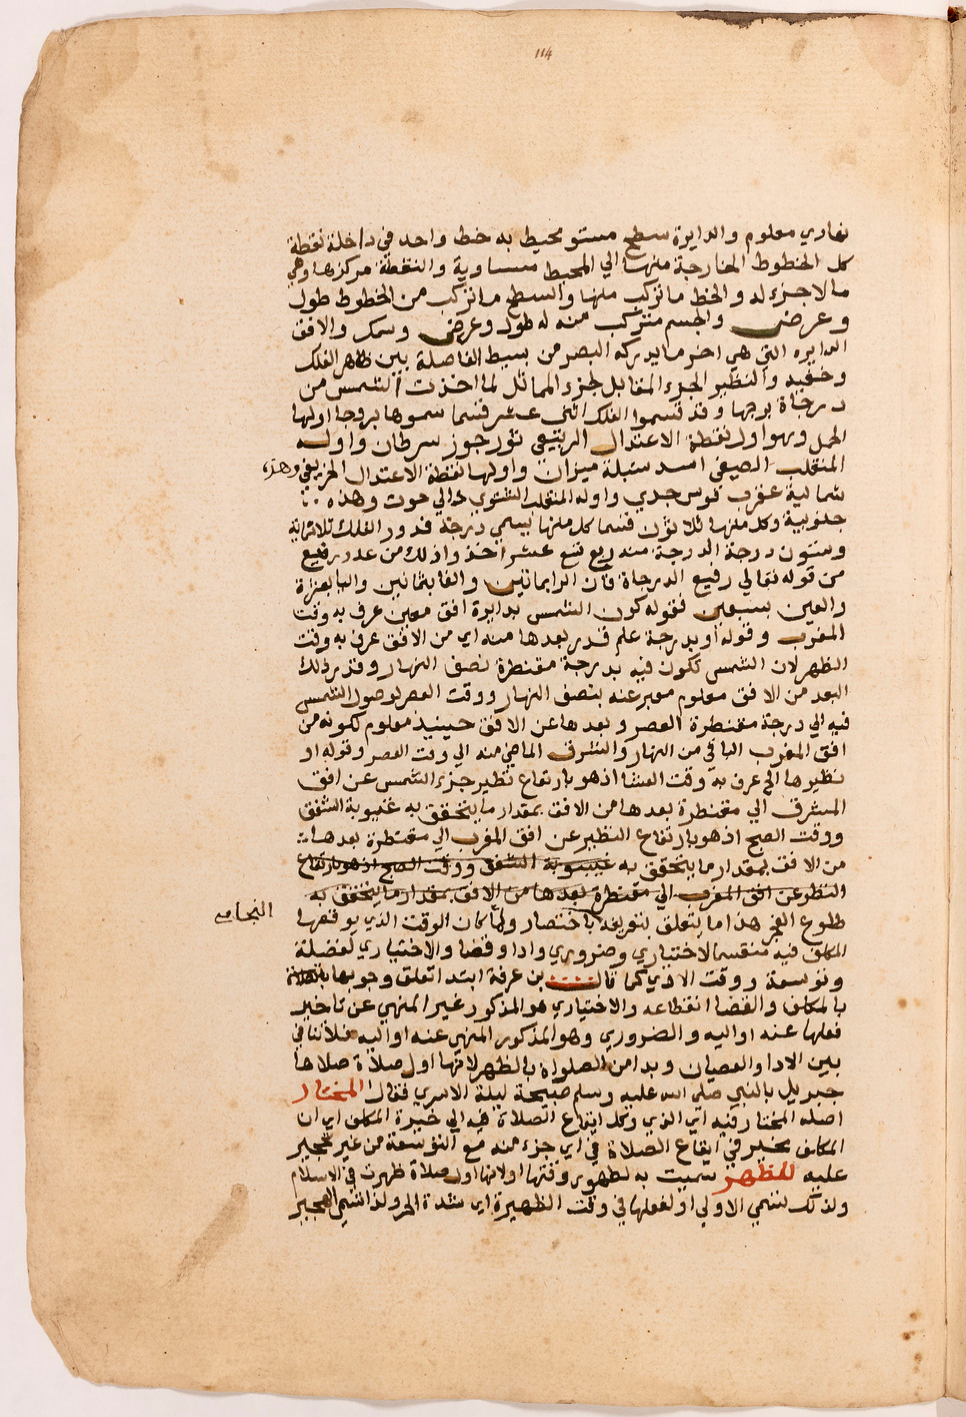 114
نهاري معلوم والدايرة سطح مستو يحيط به خط واحد في داخله نقطة
كل الخطوط الخارجة منها الي المحيط متساوية والنقطة مركزها وهي
ما لا جزء له والخط ما تركب منها والسطح ما تركب من الخطوط طول
وعرض والجسم متركب منه له طول وعرض وسمك والافق
الدايره التي هي اخر ما يدركه البصر من بسيط الفاصلة بين ظاهر الفلك
وخفيه والنظير الجزء المقابل لجزء المماثل لما اخذت الشمس من
درجاة برجها وقد قسموا الفلك اثني عشر قسما سموها بروجا اولها
الحمل وهو اول نقطة الاعتدال الربيعي ثور جوز سرطان واوله
المنقلب الصيفي اسد سنبلة ميزان واولها نقطة الاعتدال الخريفي وهذه
شمالية عقرب قوس جدي واوله المنقلب الشتوي دالي حوت وهذه
جنوبية وكل منها ثلاثون قسما كل منها يسمي درجة فدور الفلك ثلاثماية
وستون درجة الدرجة منه ربع تسع عشر اخذوا ذلك من عدد رفيع
من قوله تعالي رفيع الدرجاة فان الرا بمائتين والفا بثمانين واليا بعشرة
والعين بسبعين فقوله كون الشمس بدايرة افق معين عرف به وقت
المغرب وقوله او بدرجة علم قدر بعدها منه اي من الافق عرف به وقت
الظهر لان الشمس تكون فيه بدرجة مقنطرة نصف النهار وقدر ذلك
البعد من الافق معلوم معبر عنه بنصف النهار ووقت العصر لوصول الشمس
فيه الي درجة مقنطرة العصر وبعدها عن الافق حينيذ معلوم ككونه من
افق المغرب الباقي من النهار والشرف الماضي منه الي وقت العصر وقوله او
نظيرها الخ عرف به وقت العشا اذ هو بارتفاع نظير جزء الشمس عن افق
المشرق الي مقنطرة بعدها من الافق بمقدار ما يتحقق به غيبوبة الشفق
ووقت الصبح اذ هو بارتفاع النظير عن افق المغرب الي مقنطرة بعدها
من الافق بمقدار ما يتحقق به غيبوبة الشفق ووقت الصبح اذ هو بارتفاع
النظير عن افق المغرب الي مقنطرة بعدها من الافق بمقدار ما يتحقق به
طلوع الفجر هذا ما يتعلق بتعريفه باختصار ولما كان الوقت الذي يوقعها
المكلف فيه منقسما لاختياري وضروري وادا وقضا والاختياري لفضيلة
وتوسعة ووقت الادي كما قال بن عرفة ابتدا تعلق وجوبها
بالمكلف والقضا انقطاعه والاختياري هو المذكور غير المنهي عن تاخير
فعلها عنه او اليه والضروري وهو المذكور المنهي عنه او اليه فلا تنافي
بين الادا والعصيان وبدا من الصلواة بالظهر لانها اول صلاة صلاها
جبريل بالنبي صلي الله عليه وسلم صبيحة ليلة الاسري فقال المختار
اصله المختار فيه اي الذي وكل ايقاع الصلاة فيه الي خيرة المكلف اي ان
المكلف مخير في ايقاع الصلاة في اي جزء منه مع التوسعة من غير تحجير
عليه للظهر سميت به لظهور وقتها او لانها اول صلاة ظهرت في الاسلام
ولذلك تسمي الاولي او لفعلها في وقت الظهيرة اي شدة الحر ولذا تسمي الهجير